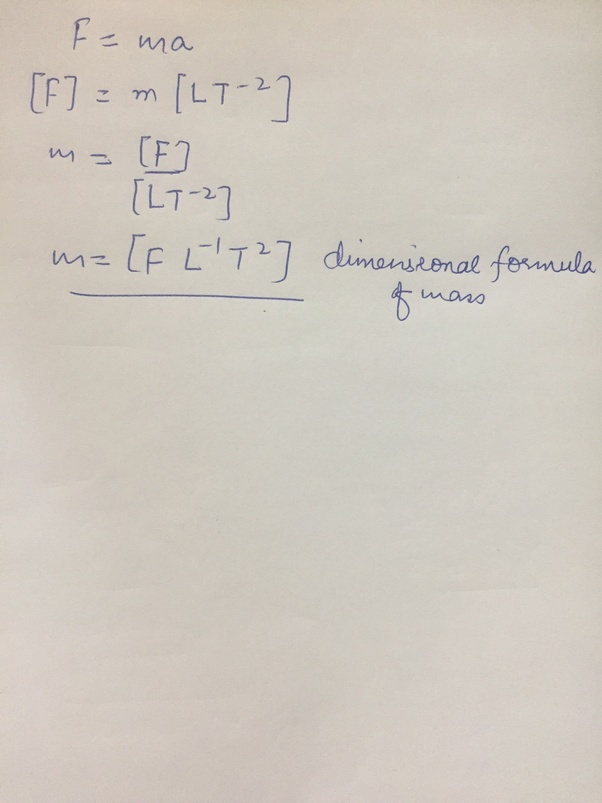 F = ma
[F] = m [LT⁻²]
m = [F]
[LT⁻²]
m = [F L⁻¹ T²] dimensional formula
of mass